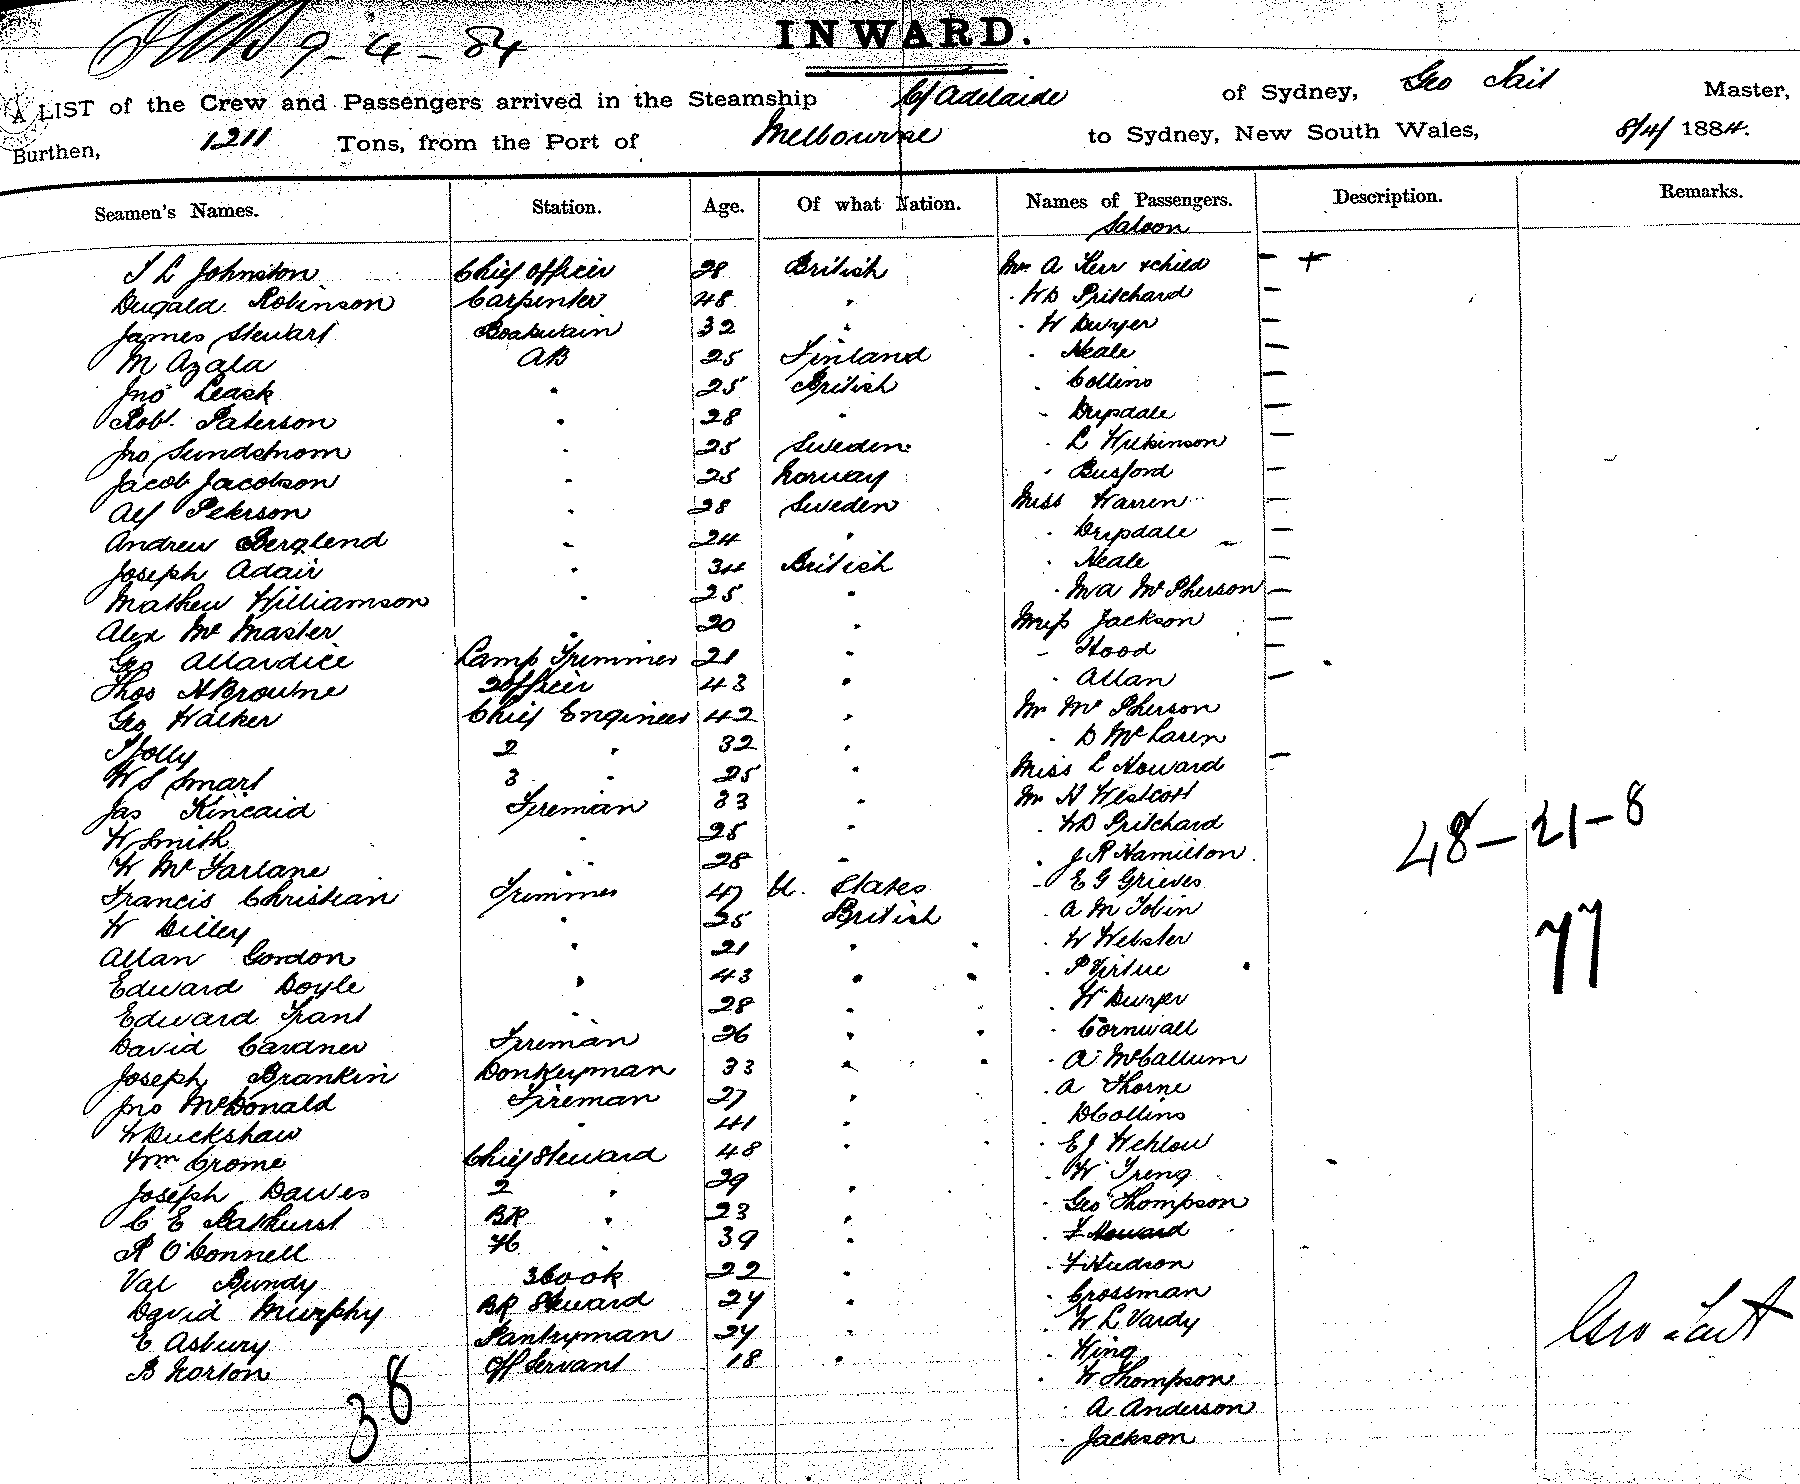 9-4-84
INWARD.
A LIST of the Crew and Passengers arrived in the Steamship C/ Adelaide of Sydney, Geo Tait Master,
Burthen, 1211 Tons, from the Port of Melbourne to Sydney, New South Wales, 8/4/ 1884.
Seamen's Names. Station. Age. Of what Nation. Names of Passengers. Description. Remarks.
Saloon
J L Johnston Chief Officer 28 British Mrs A Kerr & child – +
Dugald Robinson Carpenter 48 " " W D Pritchard –
James Stewart Boatswain 32 " " W Dwyer –
M Azala AB 25 Finland " Neale –
Jno Leask " 25 British " Collins –
Robt. Paterson " 28 " " Drysdale –
Jno Sundstrom " 25 Sweden " L Wilkinson –
Jacob Jacobson " 25 Norway " Busford –
Alf Peterson " 28 Sweden Miss Warren –
Andrew Berglend " 24 " " Drysdale –
Joseph Adair " 34 British " Neale –
Mathew Williamson " 25 " " McPherson –
Alex McMaster " 20 " Miss Jackson –
Geo Allardice Lamp Trimmer 21 " " Hood –
Thos H Browne 2 Officer 43 " " Allan –
Geo Walker Chief Engineer 42 " Mr McPherson
J Jolly 2 " 32 " " D McLaren
W S Smart 3 " 25 " Miss L Howard –
Jas Kincaid Fireman 33 " Mr H Westcott
W Smith " 25 " " W D Pritchard
W McFarlane " 28 " " J R Hamilton
Francis Christian Trimmer 47 U. States " E G Grieves
W Dilley " 25 British " A M Tobin
Allan Gordon " 21 " " W Webster
Edward Doyle " 43 " " P Virtue
Edward Grant " 28 " " W Dwyer
David Gardner Fireman 26 " " Cornwall
Joseph Brankin Donkeyman 33 " " A McCallum
Jno McDonald Fireman 27 " " A Thorne
W Duckshaw " 41 " " D Collins
Wm Crome Chief Steward 48 " " E J Wehlow
Joseph Dawes 2 " 29 " " W
C E Bathurst BR " 23 " " Geo Thompson
R O'Connell " 39 " " F Howard
Val Bundy 3 Cook 22 " " F Hudson
David Murphy BR Steward 24 " " Crossman
E Asbury Pantryman 24 " " W L Vardy
B Norton Off Servant 18 " " King
" W Thompson
" A Anderson
" Jackson
48–21–8
77
Geo Tait
38